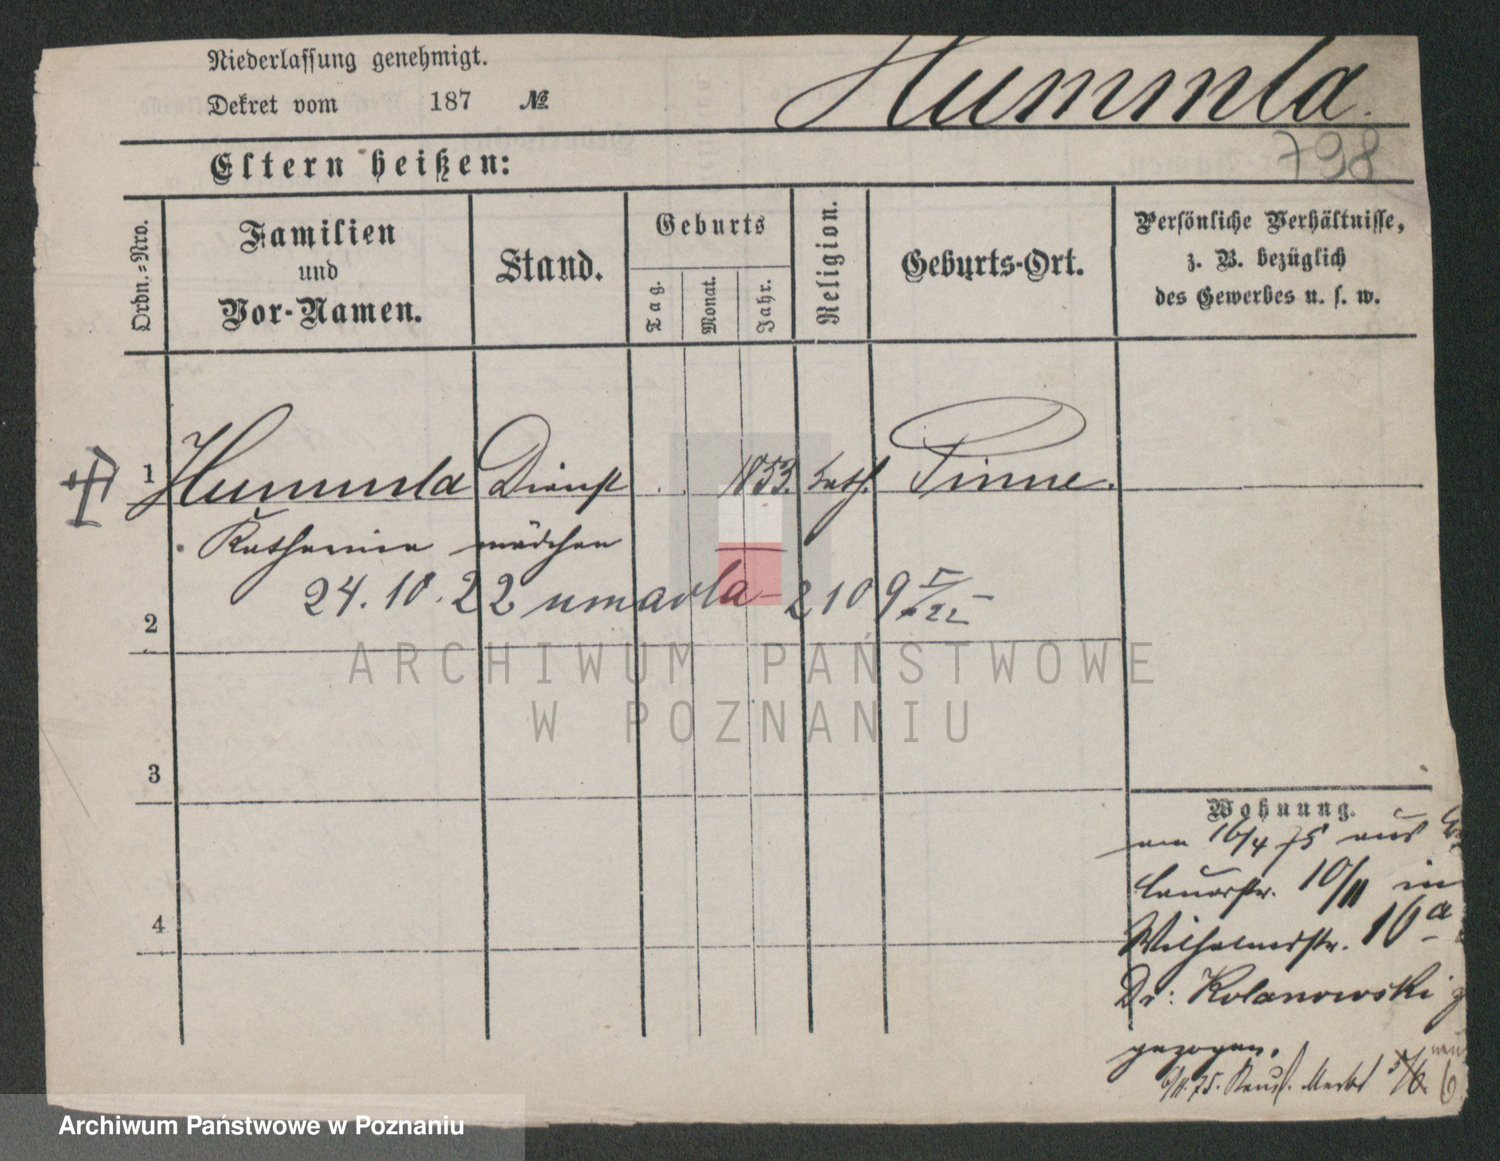 Niederlassung genehmigt.
Dekret vom 187 №
Hummla.
798
Eltern heißen:
Ordn.=Nro.
Familien
und
Vor-Namen.
Stand.
Geburts
Tag.
Monat.
Jahr.
Religion.
Geburts-Ort.
Persönliche Verhältnisse,
z. B. bezüglich
des Gewerbes u. s. w.
1 Hummla Dienst 1853. kath. Pinne.
Katharina mädchen
24.10.22 umarła - 2109
2
ARCHIWUM PAŃSTWOWE
W POZNANIU
3
Wohnung.
am 16/4 75 aus
10/11 in
4
Wilhelmstr. 16a
Dr: Kolanowski
gezogen.
Markt
Archiwum Państwowe w Poznaniu